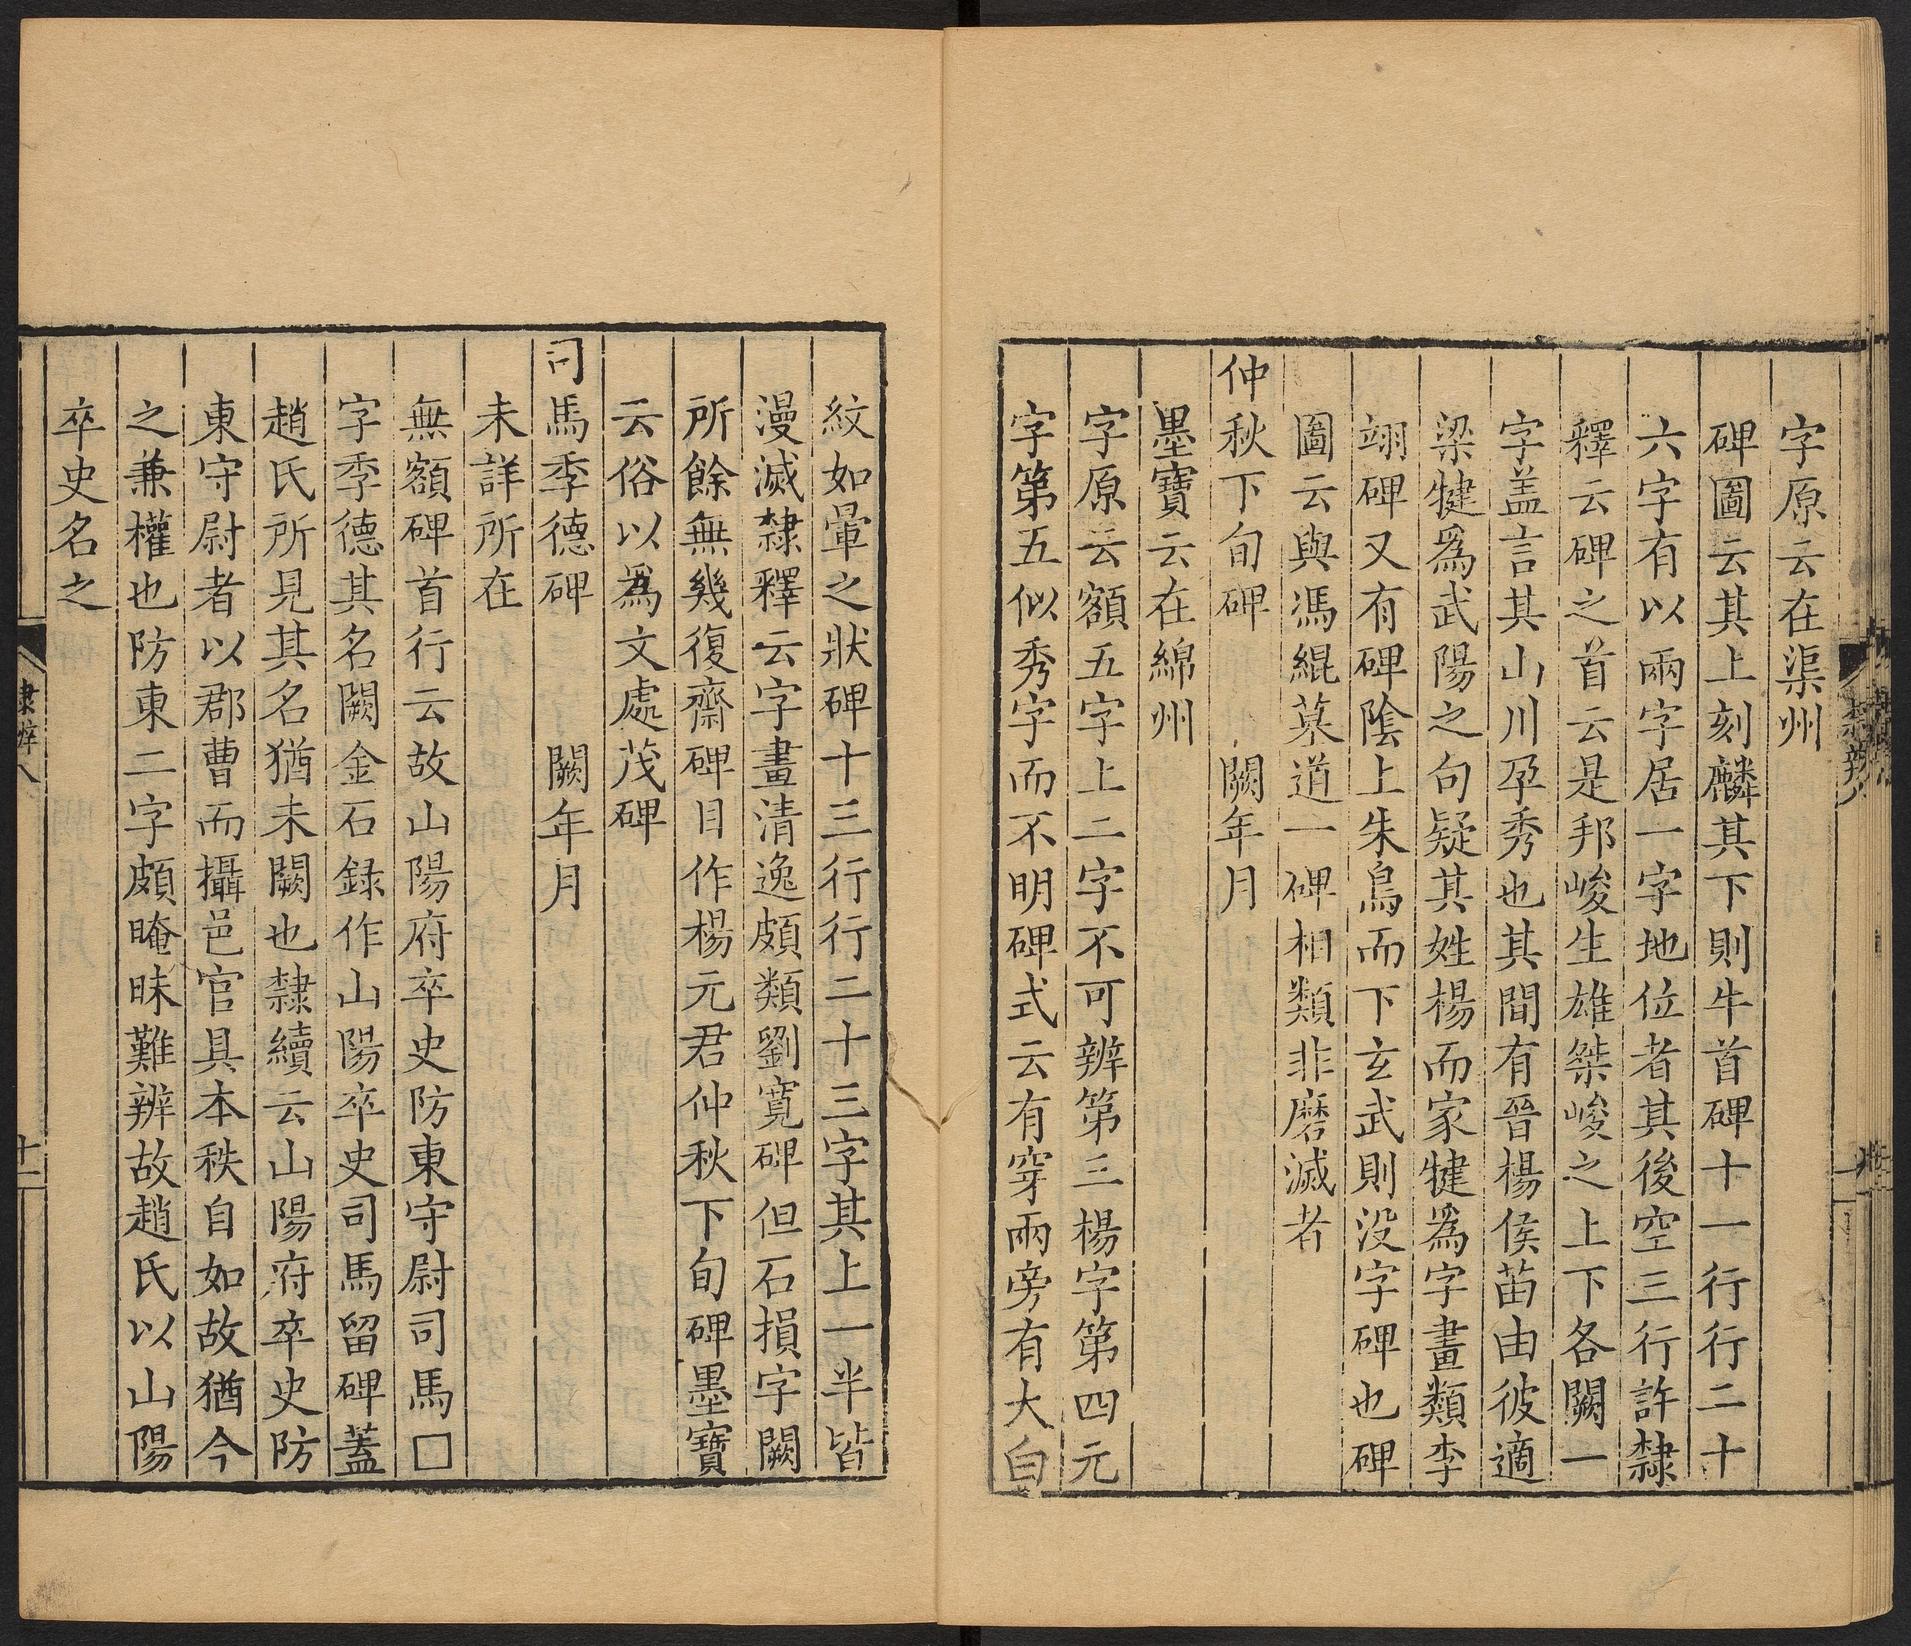 字原云在渠州
碑圖云其上刻麟其下則牛首碑十一行行二十
六字有以兩字居一字地位者其後空三行許隸
釋云碑之首云是邦峻生雄桀峻之上下各闕一
字盖言其山川孕秀也其間有晉楊侯苗由彼適
梁犍爲武陽之句疑其姓楊而家犍爲字畫類李
翊碑又有碑陰上朱鳥而下玄武則没字碑也碑
圖云與馮緄墓道一碑相類非磨滅者
仲秋下旬碑 闕年月
墨寶云在綿州
字原云額五字上二字不可辨第三楊字第四元
字第五似秀字而不明碑式云有穿兩旁有大白
紋如暈之狀碑十三行行二十三字其上一半皆
漫滅隸釋云字畫清逸頗類劉寬碑但石損字闕
所餘無幾復齋碑目作楊元君仲秋下旬碑墨寶
云俗以爲文處茂碑
司馬季德碑 闕年月
未詳所在
無額碑首行云故山陽府卒史防東守尉司馬□
字季德其名闕金石録作山陽卒史司馬留碑蓋
趙氏所見其名猶未闕也隸續云山陽府卒史防
東守尉者以郡曹而攝邑官具本秩自如故猶今
之兼權也防東二字頗晻昧難辨故趙氏以山陽
卒史名之
隸辨八
十二